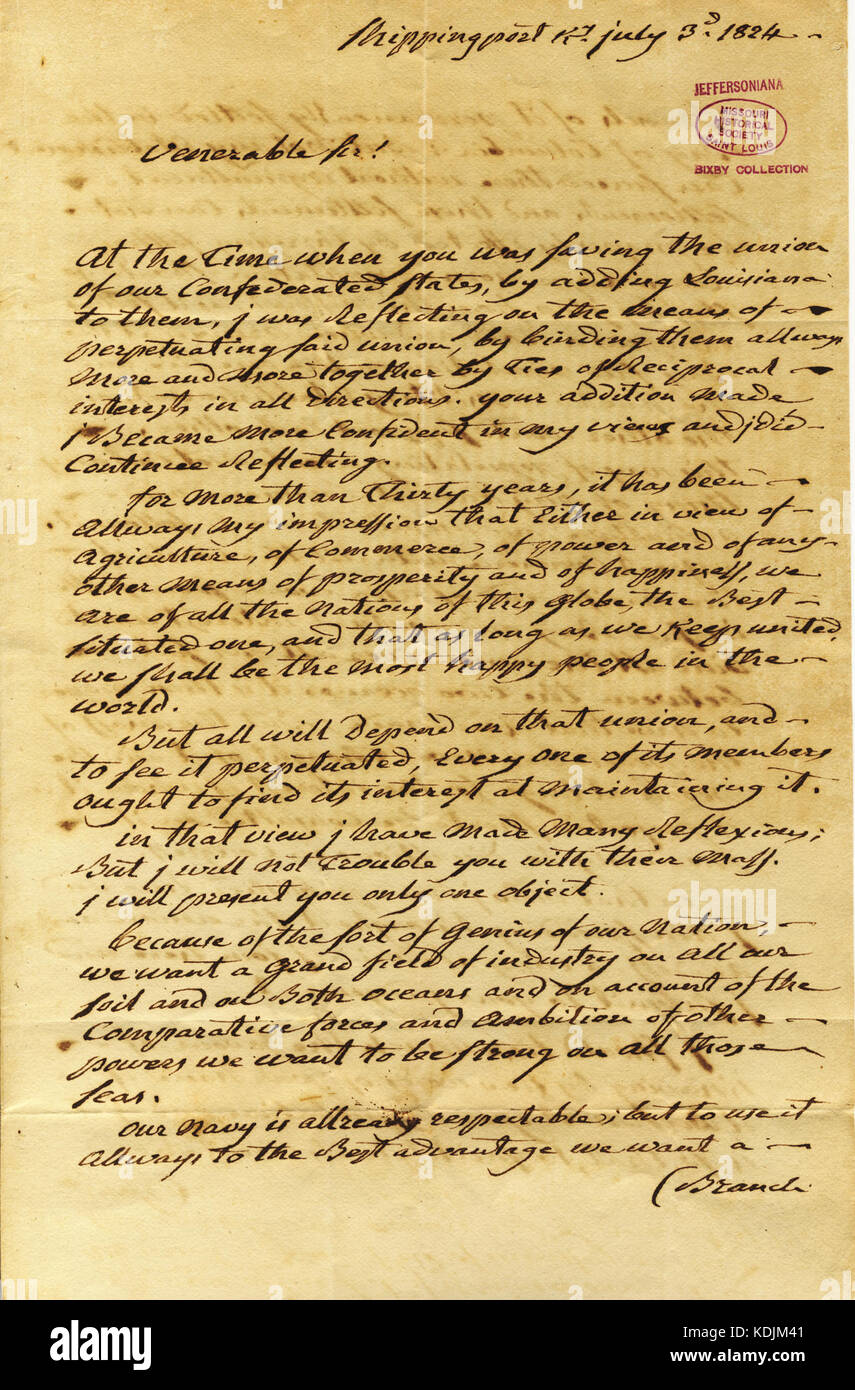 Shippingport Ky. july 3d. 1824
JEFFERSONIANA
MISSOURI
HISTORICAL
SOCIETY
SAINT LOUIS
BIXBY COLLECTION
Venerable Sir!
At the Time when you was saving the union
of our Confederated States, by adding Louisiana
to them, j was Reflecting on the Means of
perpetuating said union, by binding them allways
More and More together by Ties of Reciprocal
interests in all Directions. your addition Made
j Became More Confident in my views and j did
Continue Reflecting.
for More than Thirty years, it has been
Allways My impression that Either in view of
Agriculture, of Commerce, of power and of any
other Means of prosperity and of happiness, we
Are of all the Nations of this globe, the Best
situated one, and that as long as we Keep united,
we shall be the Most happy people in the
world.
But all will Depend on that union, and
to see it perpetuated, Every One of its Members
ought to find its interest at Maintaining it.
in that view j have Made Many Reflexions;
But j will Not Trouble you with their Mass.
j will present you only one object.
because of the sort of Genius of our Nation,
we want a Grand field of industry on All our
soil and on Both Oceans and on account of the
Comparative forces and Ambition of other
powers we want to be strong on All those
seas.
Our Navy is allready respectable; but to use it
Allways to the Best advantage we want a
(Branch
alamy
Image ID: KDJM41
www.alamy.com